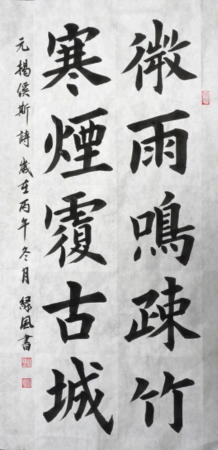 微雨鳴疎竹
寒煙覆古城
元揭傒斯詩歲在丙午冬月緑風書